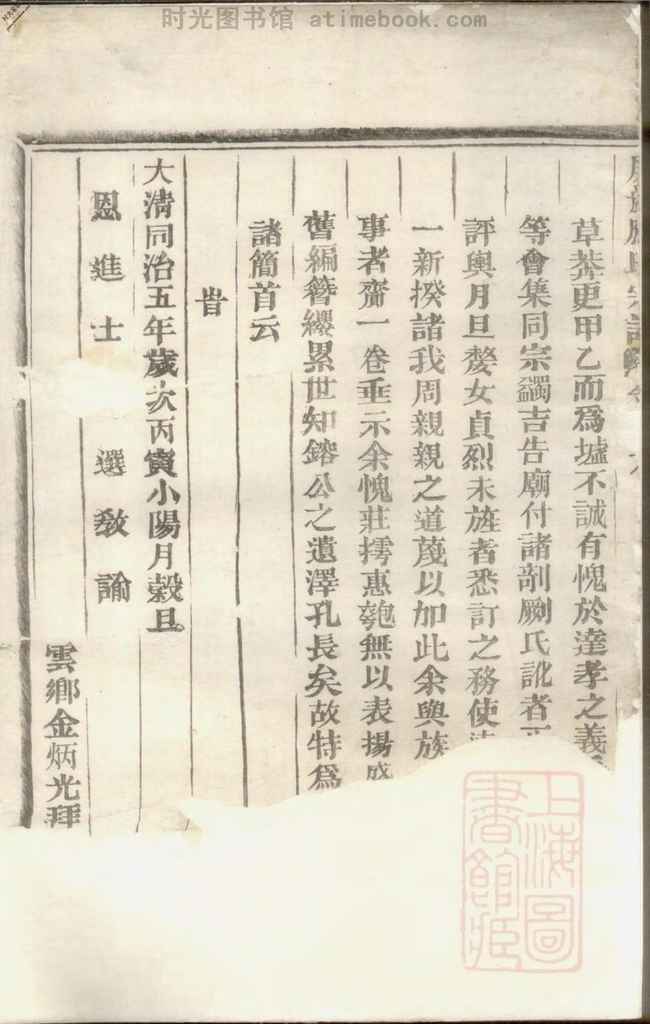 时光图书馆 atimebook.com
草莽更甲乙而爲墟不誠有愧於達孝之義
等會集同宗蠲吉告廟付諸剞劂氏訛者正
評輿月旦嫠女貞烈未旌者悉訂之務使
一新揆諸我周親親之道蔑以加此余與族
事者齋一卷垂示余愧莊摴惠匏無以表揚盛
舊編簪纓累世知鎔公之遺澤孔長矣故特爲
諸簡首云
旹
大清同治五年歲次丙寅小陽月穀旦
恩進士 選教諭
雲鄉金炳光拜
上海圖書館藏